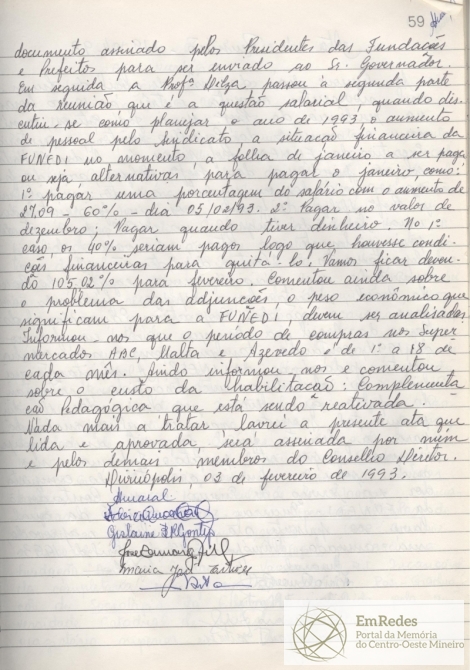 59
documento assinado pelos Presidentes das Fundações
e Prefeitos para ser enviado ao Sr. Governador.
Em seguida a Profª Dilza, passou à segunda parte
da reunião que é a questão salarial, quando dis-
cutiu-se como planejar o ano de 1993, o aumento
de pessoal pelo Sindicato a situação financeira da
FUNEDI no momento, a folha de janeiro a ser paga
ou seja alternativas para pagar o janeiro, como:
1º pagar uma porcentagem do salário com o aumento de
27.09 - 60% - dia 05/02/93. 2º Pagar no valor de
dezembro; Pagar quando tiver dinheiro. No 1º
caso, os 40% seriam pagos logo que houvesse condi-
ções financeiras para quitá-lo. Vamos ficar deven-
do 105,02% para fevereiro. Comentou ainda sobre
o problema das adjunções, o peso econômico que
significam para a FUNEDI, devem ser analisadas
Informou-nos que o período de compras nos Super
mercados ABC, Malta e Azevedo é de 1º a 18 de
cada mês. Ainda informou-nos e comentou
sobre o custo da habilitação: Complementa
ção Pedagógica que está sendo reativada.
Nada mais a tratar lavrei a presente ata que
lida e aprovada será assinada por mim
e pelos demais membros do Conselho Diretor.
Divinópolis, 03 de fevereiro de 1993.
Amaral
Gislaine
Maria José
EmRedes
Portal da Memória
do Centro-Oeste Mineiro